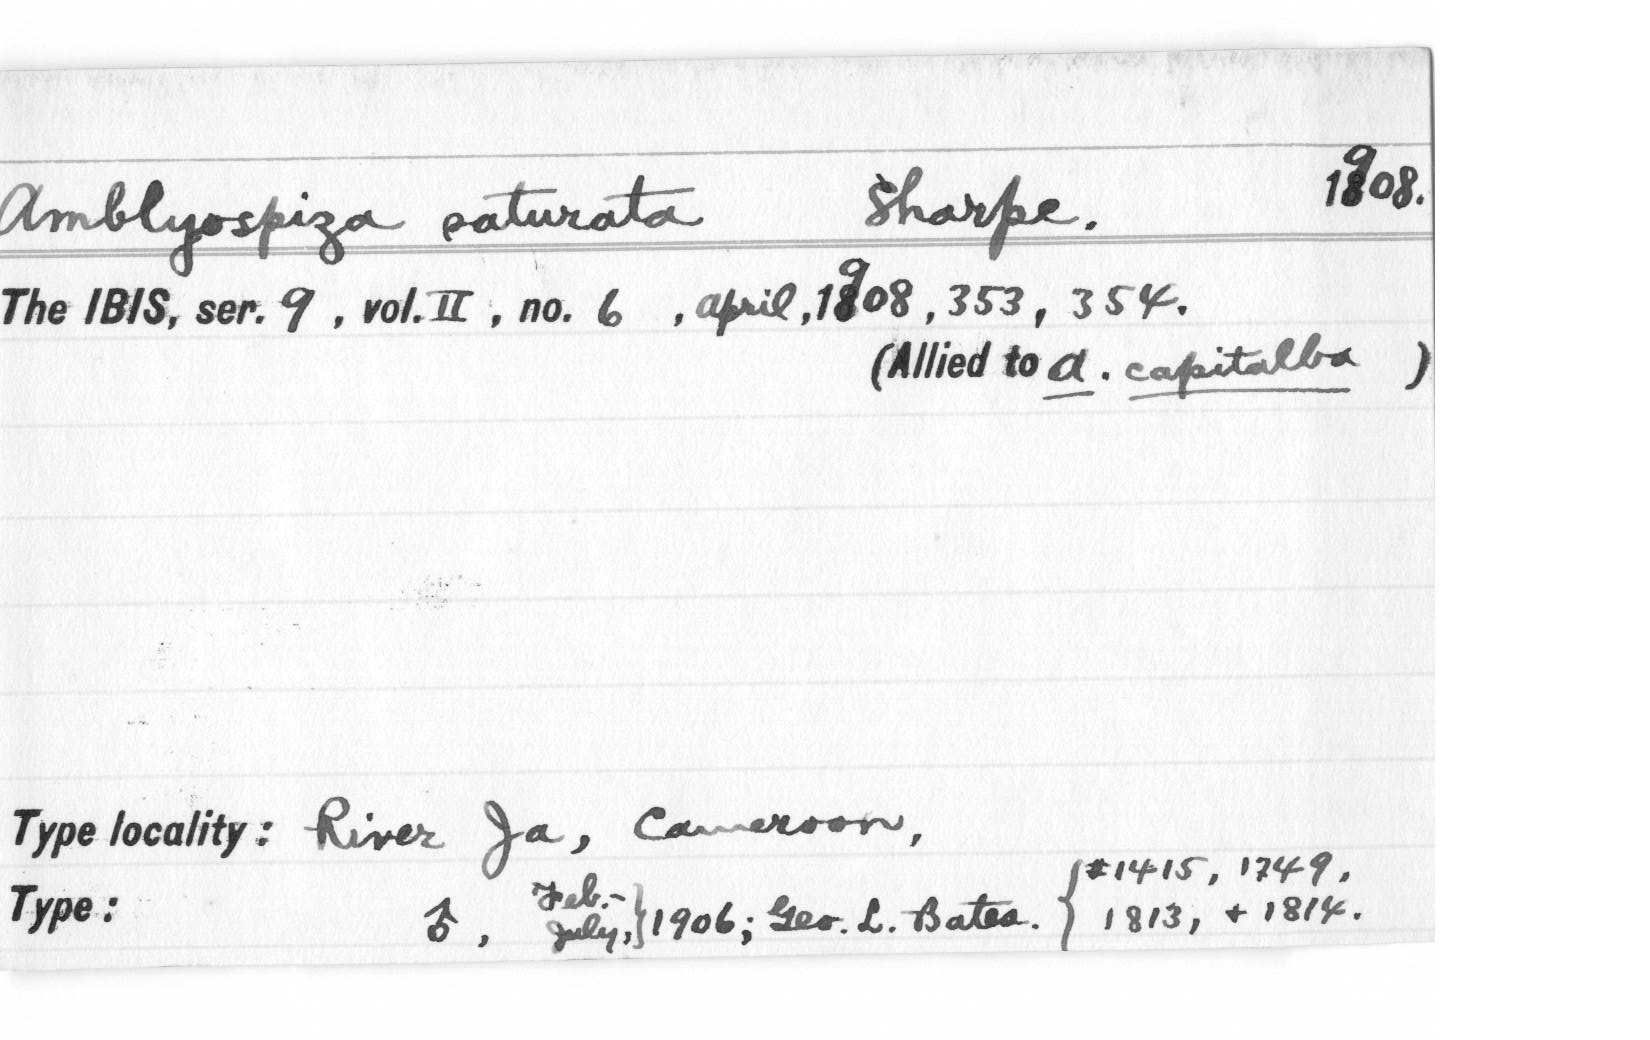 Amblyospiza saturata Sharpe. 1908.
The IBIS, ser. 9, vol. II, no. 6, April, 1908, 353, 354.
(Allied to A. capitalba)
Type locality: River Ja, Cameroon,
Type: ♂, Feb.- July, } 1906; Geo. L. Bates. { #1415, 1749, 1813, + 1814.